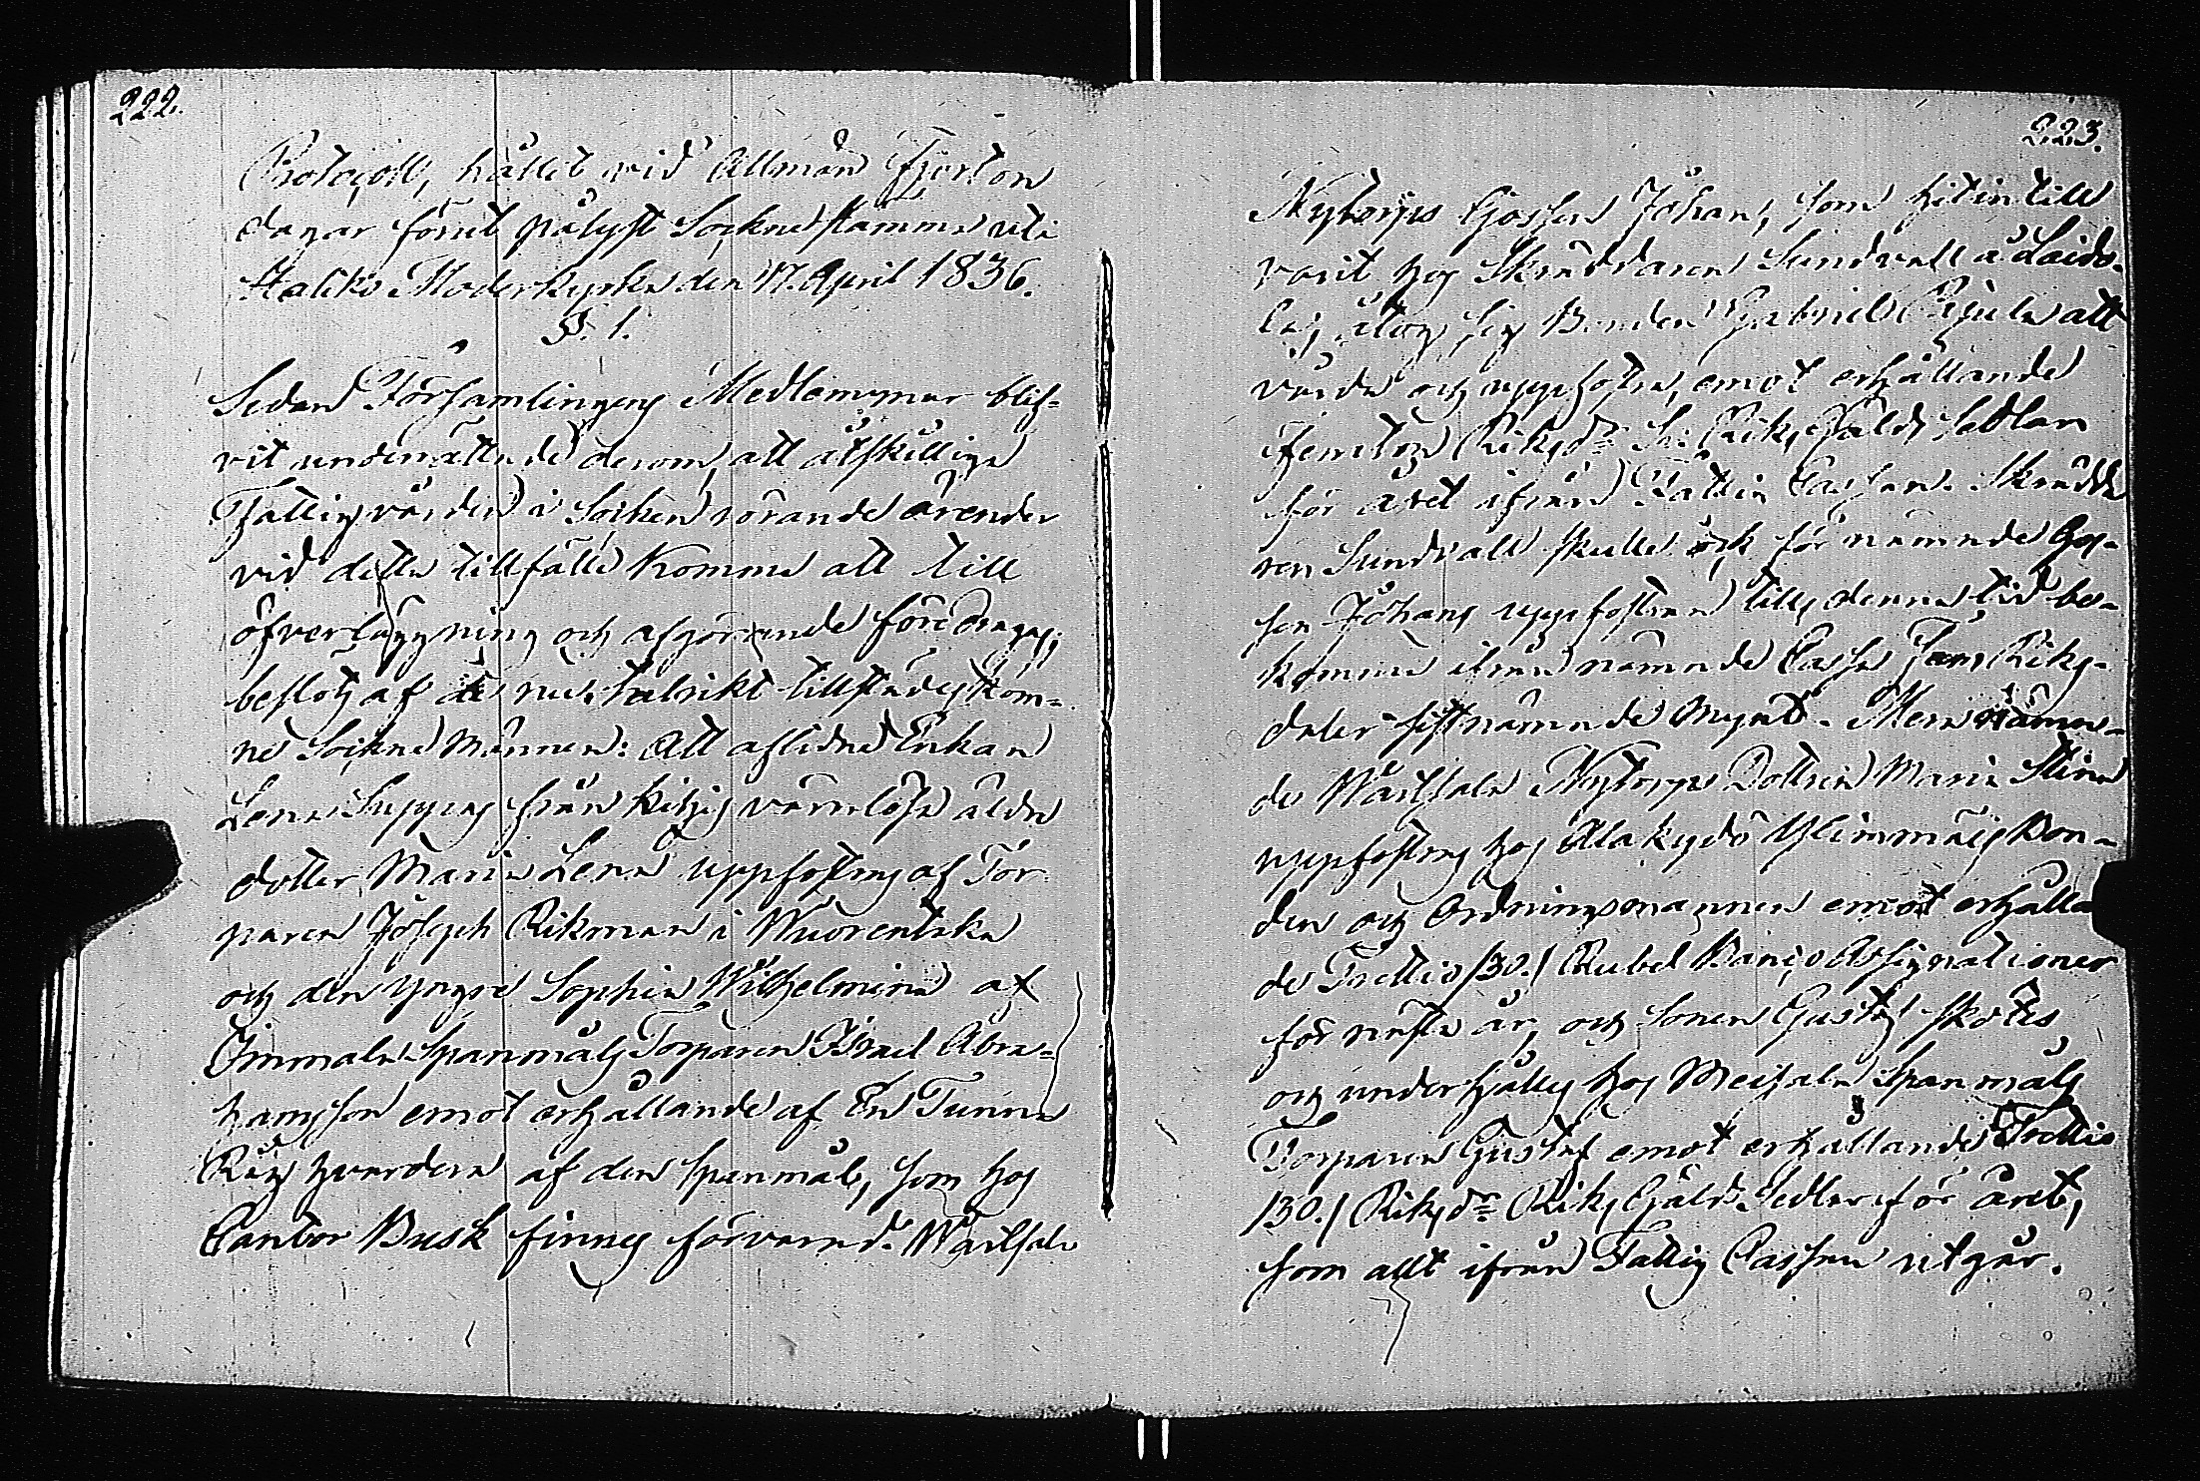 222.
Protocoll, hållit vid Allmän Fjorton
dagar förut pålyst Sockne stämma uti
Haliko Moderkyrka den 17. April 1836.
§. 1.
Sedan Församlingens Medlemmar blif-
vit underrättade derom, att åtskilliga
Fattigvården i Socken rörande ärender
vid detta tillfälle komma att till
öfverläggning och afgörande föredragas,
beslöts af de nu talrikt tillstädeskom-
ne Sockne Männen: Att aflidne Enkan
Lena från värnlösa äldre
dotter Maria Lena uppfostras af Tor-
paren Joseph Rikman i Wuorentaka
och den yngre Sophia Wilhelmina af
Immala Spanmåls Torparen Israel Abra-
hamsson emot erhållande af En Tunna
Råg hvardera af den spanmål, som hos
Cantor Busk finnes förvarad. Wärtsala
223.
Nytorps Gossen Johan, som hit in till
varit hos Skräddaren Sundvall å
åtog sig Bonden Gabriel att
vårda och uppfostra, emot erhållande
Femton Riksdr Sv: Riks Gälds Sedlar
för året ifrån Fattig Cassan. Skrädda-
ren Sundvall skulle ock för nämnde Gos-
sen Johans uppfostran tills denna tid be-
komma ifrån nämnde Cassa Fem Riks-
daler sistnämnde mynt. Men nämn-
de Wärtsala Nytorps Dottren Maria Stina
uppfostras hos Alakydö Ylimmäis Bon-
den och Ordningsmannen emot erhållan-
de Trettio /30./ Rubel Banco Assignationer
för nästa år, och sonen Gustaf skötes
och underhålles hos Meisala Spanmåls
Torparen Gustaf emot erhållande Trettio
/30./ Riksdr Riks Gälds Sedlar för året,
som allt ifrån Fattig Cassan utgår.